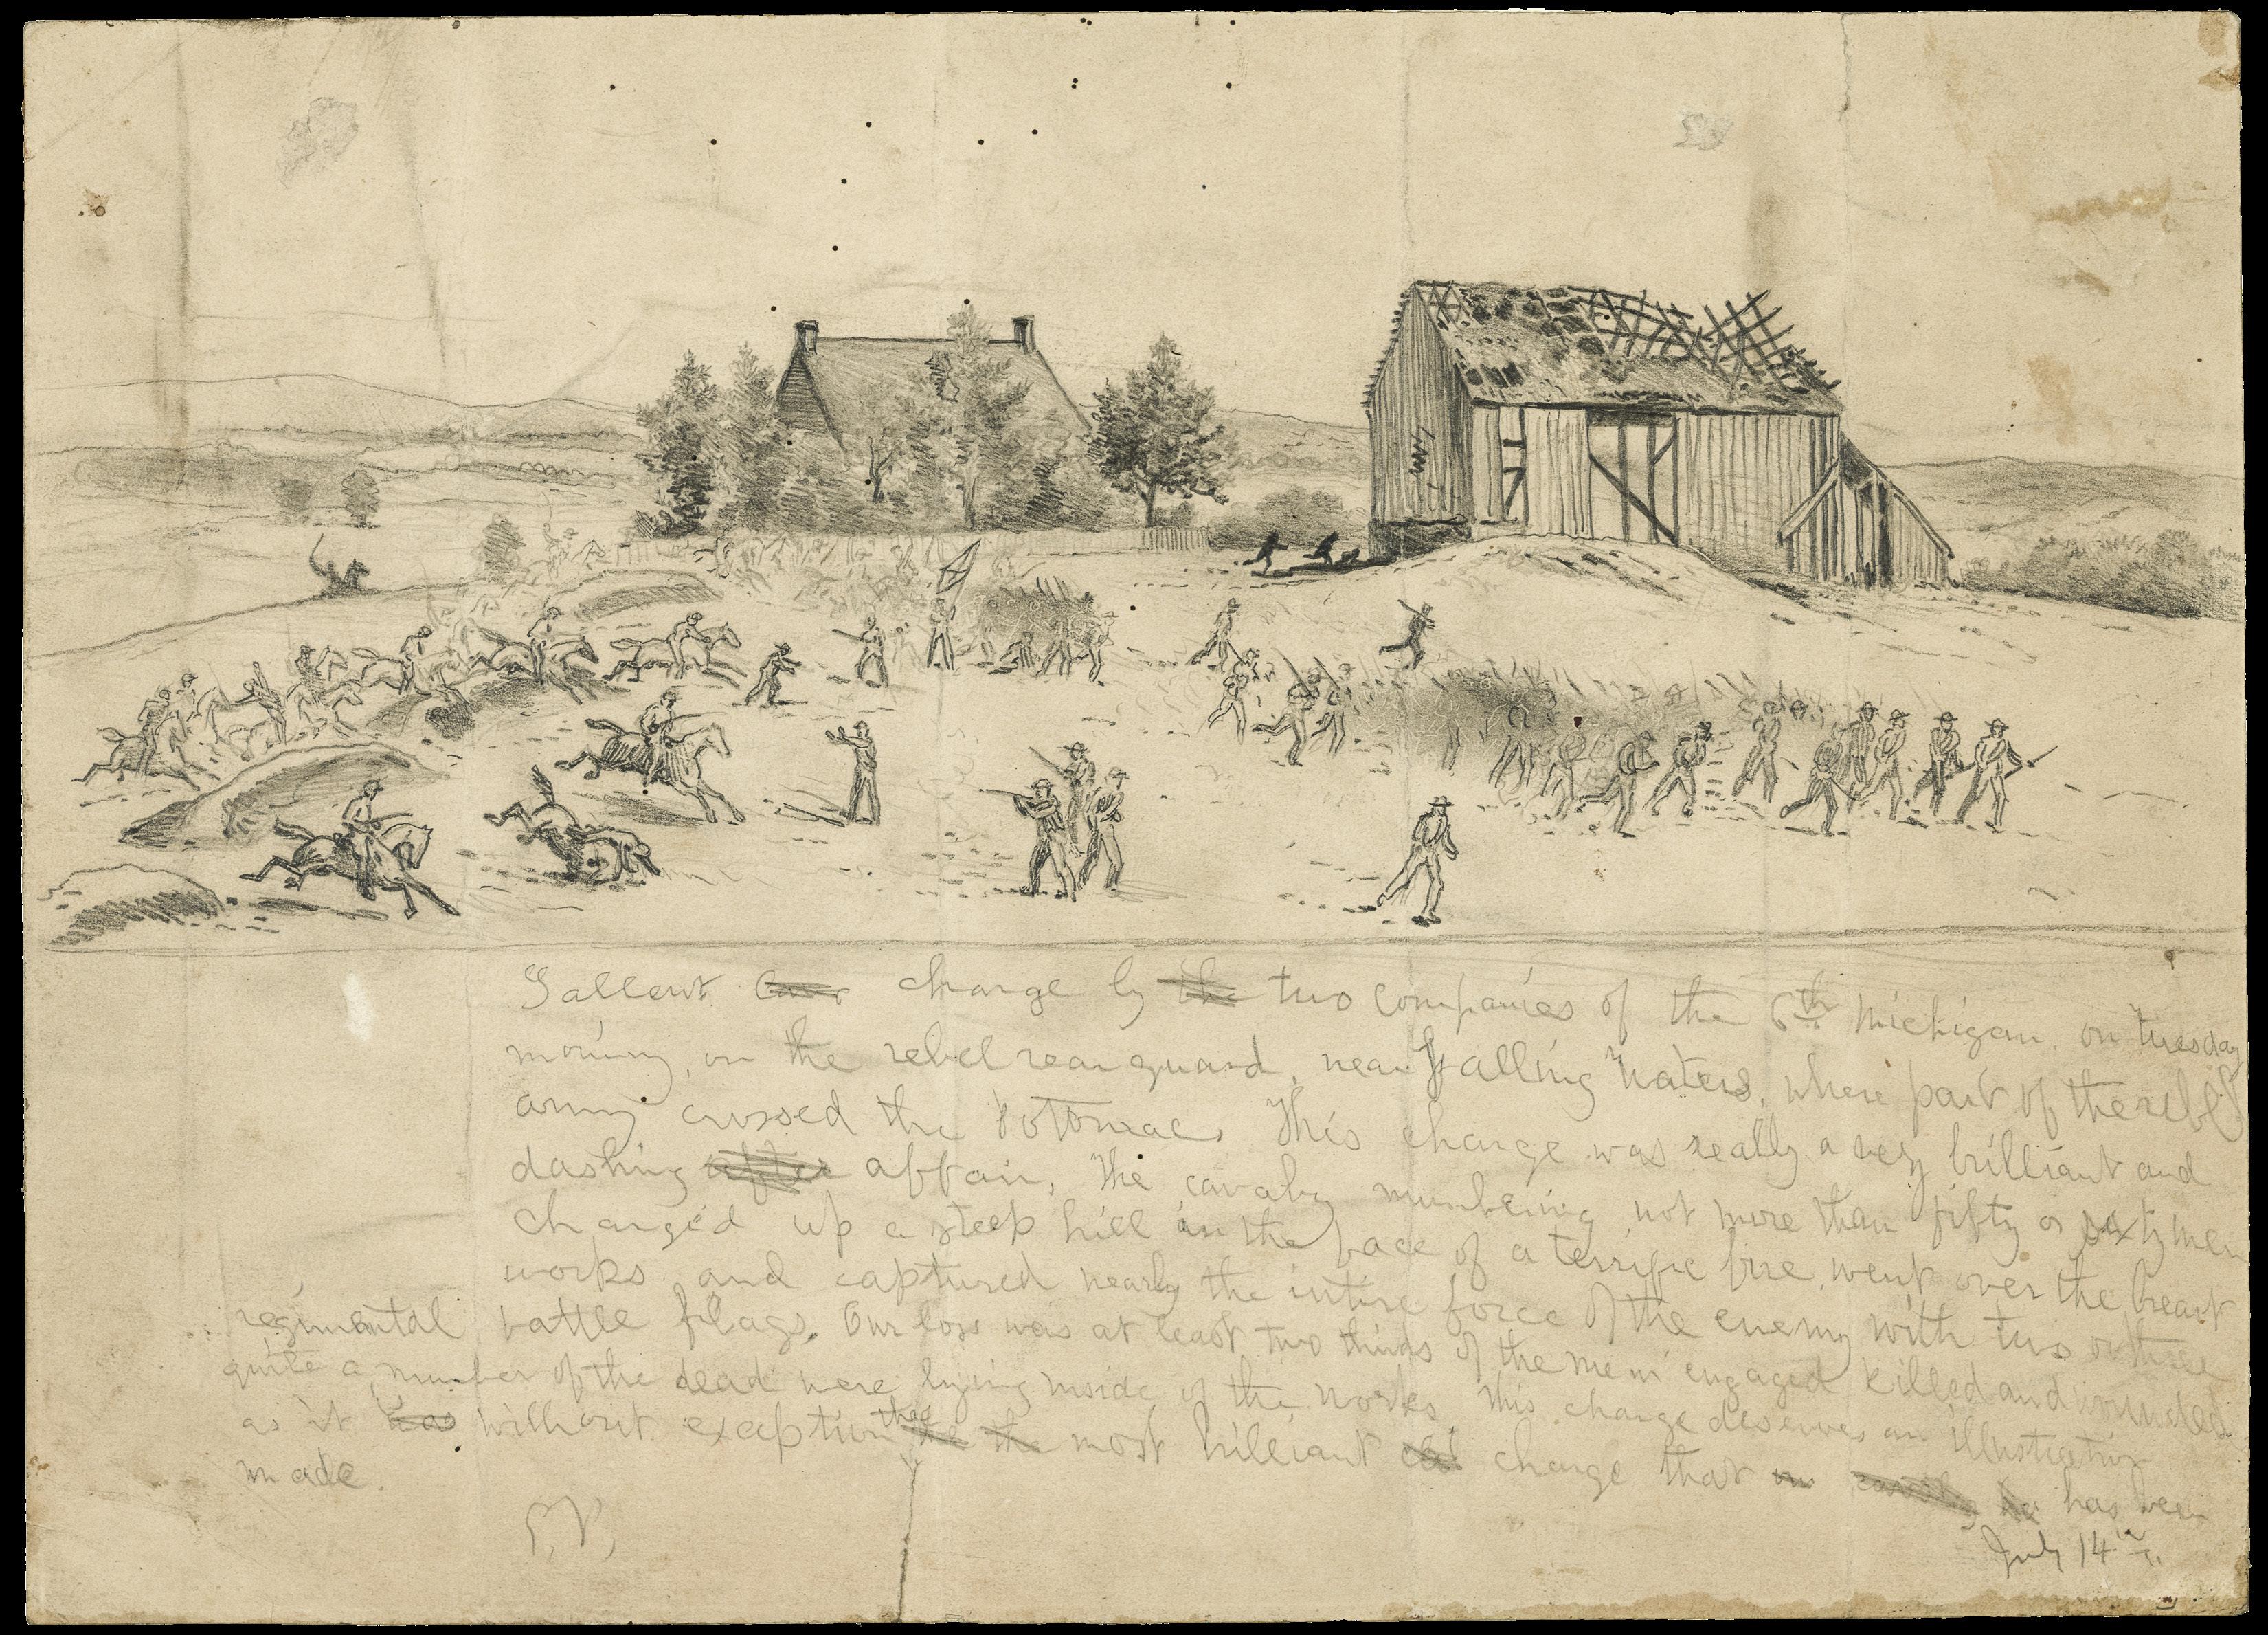 Gallent charge by the two companies of the 6th Michigan. on tuesday
morning, on the rebel rear guard, near Falling Waters, where part of the rebel
army crossed the Potomac. This charge was really a very brilliant and
dashing affair affair, The cavalry numbering not more than fifty or sixty men
charged up a steep hill in the face of a terrific fire, went over the breast
works and captured nearly the intire force of the enemy with two or three
regimental battle flags. Our loss was at least two thirds of the men engaged killed and wounded
quite a number of the dead were lying inside of the works. This charge deserves an illustration
as it was without exception the the most brilliant charge that cavalry has been
made.
July 14th.